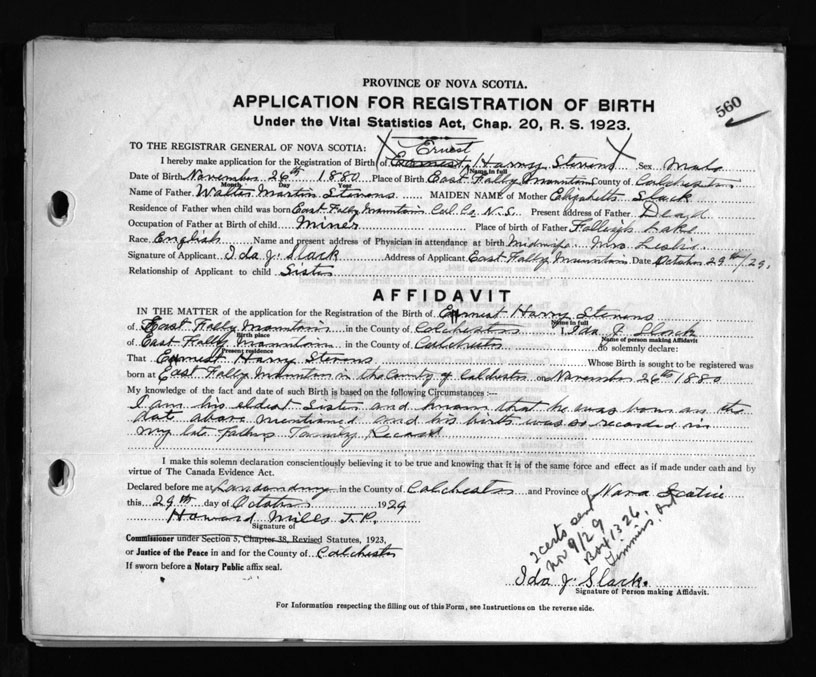 560
PROVINCE OF NOVA SCOTIA.
APPLICATION FOR REGISTRATION OF BIRTH
Under the Vital Statistics Act, Chap. 20, R. S. 1923.
TO THE REGISTRAR GENERAL OF NOVA SCOTIA: Ernest
I hereby make application for the Registration of Birth of Earnest Harry Stevens Sex Male
Name in full
Date of Birth November 26th 1880 Place of Birth East Folly Mountain County of Colchester
Month Day Year
Name of Father Walter Martin Stevens MAIDEN NAME of Mother Elizabeth Slack
Residence of Father when child was born East Folly Mountain Col. Co. N. S. Present address of Father Dead
Occupation of Father at Birth of child Miner Place of birth of Father Folleigh Lake
Race English Name and present address of Physician in attendance at birth Midwife Mrs Leslie
Signature of Applicant Ida J. Slack Address of Applicant East Folly Mountain Date October 29th/29.
Relationship of Applicant to child Sister
AFFIDAVIT
IN THE MATTER of the application for the Registration of the Birth of Ernest Harry Stevens
Name in full
of East Folly Mountain in the County of Colchester I, Ida J. Slack
Birth place Name of Person making Affidavit
of East Folly Mountain in the County of Colchester do solemnly declare:
Present residence
That Ernest Harry Stevens Whose Birth is sought to be registered was
born at East Folly Mountain in the County of Colchester on November 26th 1880
My knowledge of the fact and date of such Birth is based on the following Circumstances :—
I am his eldest Sister and know that he was born on the
date above mentioned and his birth was so recorded in
my late fathers Family Record
I make this solemn declaration conscientiously believing it to be true and knowing that it is of the same force and effect as if made under oath and by
virtue of The Canada Evidence Act.
Declared before me at Londonderry in the County of Colchester and Province of Nova Scotia
this 29th day of October 1929
Howard Mills J.P.
Signature of
Commissioner under Section 5, Chapter 38, Revised Statutes, 1923,
or Justice of the Peace in and for the County of Colchester
If sworn before a Notary Public affix seal.
2 certs sent
Nov 9/29
Box 1326,
Timmins, Ont
Ida J. Slack.
Signature of Person making Affidavit.
For Information respecting the filling out of this Form, see Instructions on the reverse side.